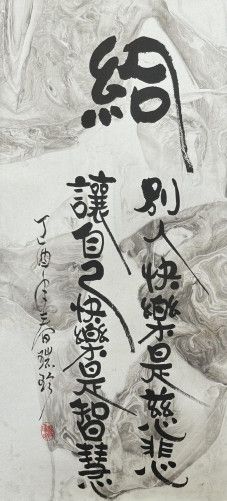 給
別人快樂是慈悲
讓自己快樂是智慧
丁酉年春